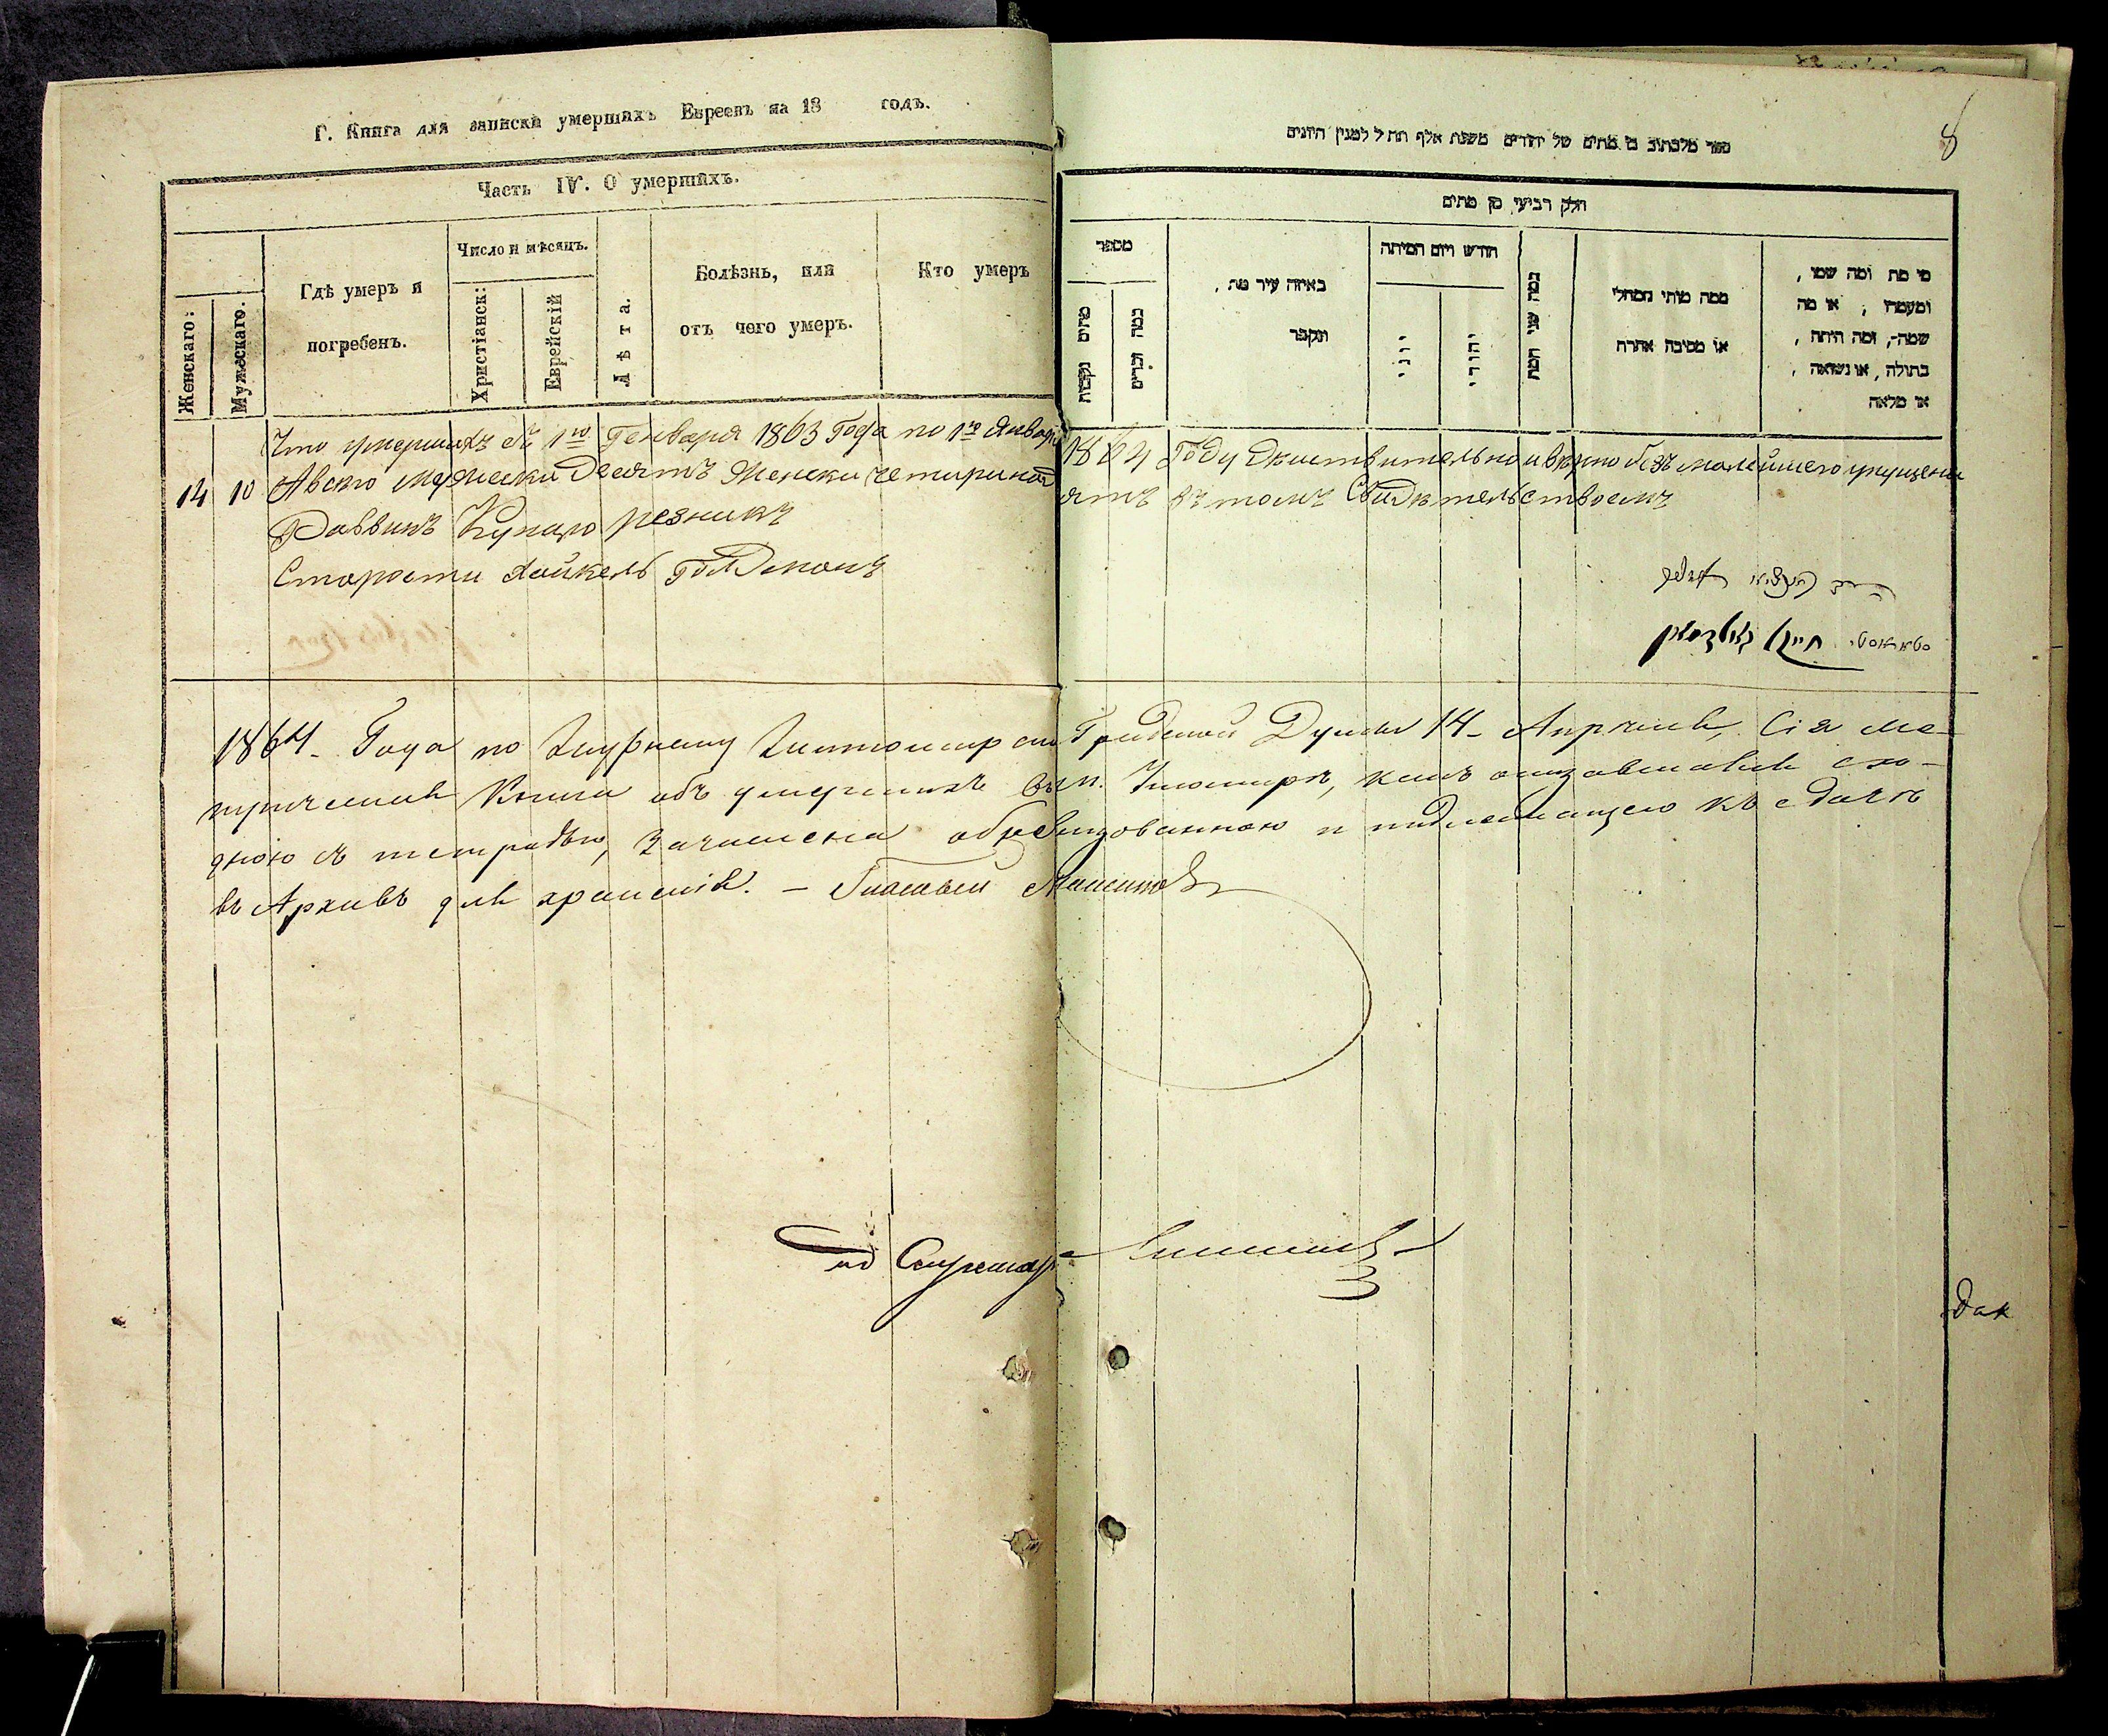 Г. Книга для записки умершихъ Евреевъ на 18 годъ.
Часть IV. О умершихъ.
Женскаго:
Мужескаго.
Гдѣ умеръ и
погребенъ.
Число и мѣсяцъ.
Христіанск:
Еврейскій
Лѣта.
Болѣзнь, или
отъ чего умеръ.
Кто умеръ
8
ספר מלכתוב מתים של יהודים משנת אלף תת ל למנין היונים
חלק רביעי מן מתים
מספר
מתים נקבות
כמה זכרים
באיזה עיר מת,
ונקבר
חודש ויום המיתה
יווני
יהודי
כמה שני המת
ממה מותו ממחלי
או מסיבה אחרת
מי מת ומה שמו,
ומעמדו; או מה
שמה, ומה היתה,
בתולה, או נשואה,
או מלאה
Что умершихъ съ 1го Генваря 1863 Года по 1е Января 1864 Году дѣиствительно и вѣрно безъ малейшего упущения
14 10 Авсего Мужески Десять Женски четиринадцять въ томъ Свидѣтельствоемъ
Раввинъ резникъ
Старости ХайкельГолдманъ
סטאראסטי חייקל גאלדמאן
1864 Года по Журналу Житомирской Градской Думы 14 Апрѣля, Сія ме-
трическая Книга объ умершихъ въ м. какъ оказавшаяся схо-
дною съ тетрадью, зачислена обревизованною и подлежащею къ сдачѣ
въ Архивъ для храненія. – Гласный
Секретарь